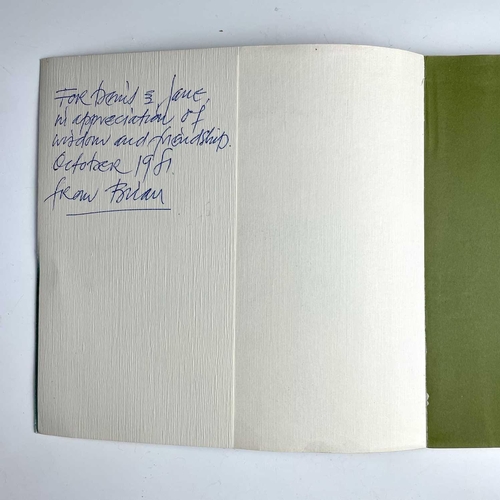 For Denis & Jane,
in appreciation of
wisdom and friendship.
October 1981.
from Brian